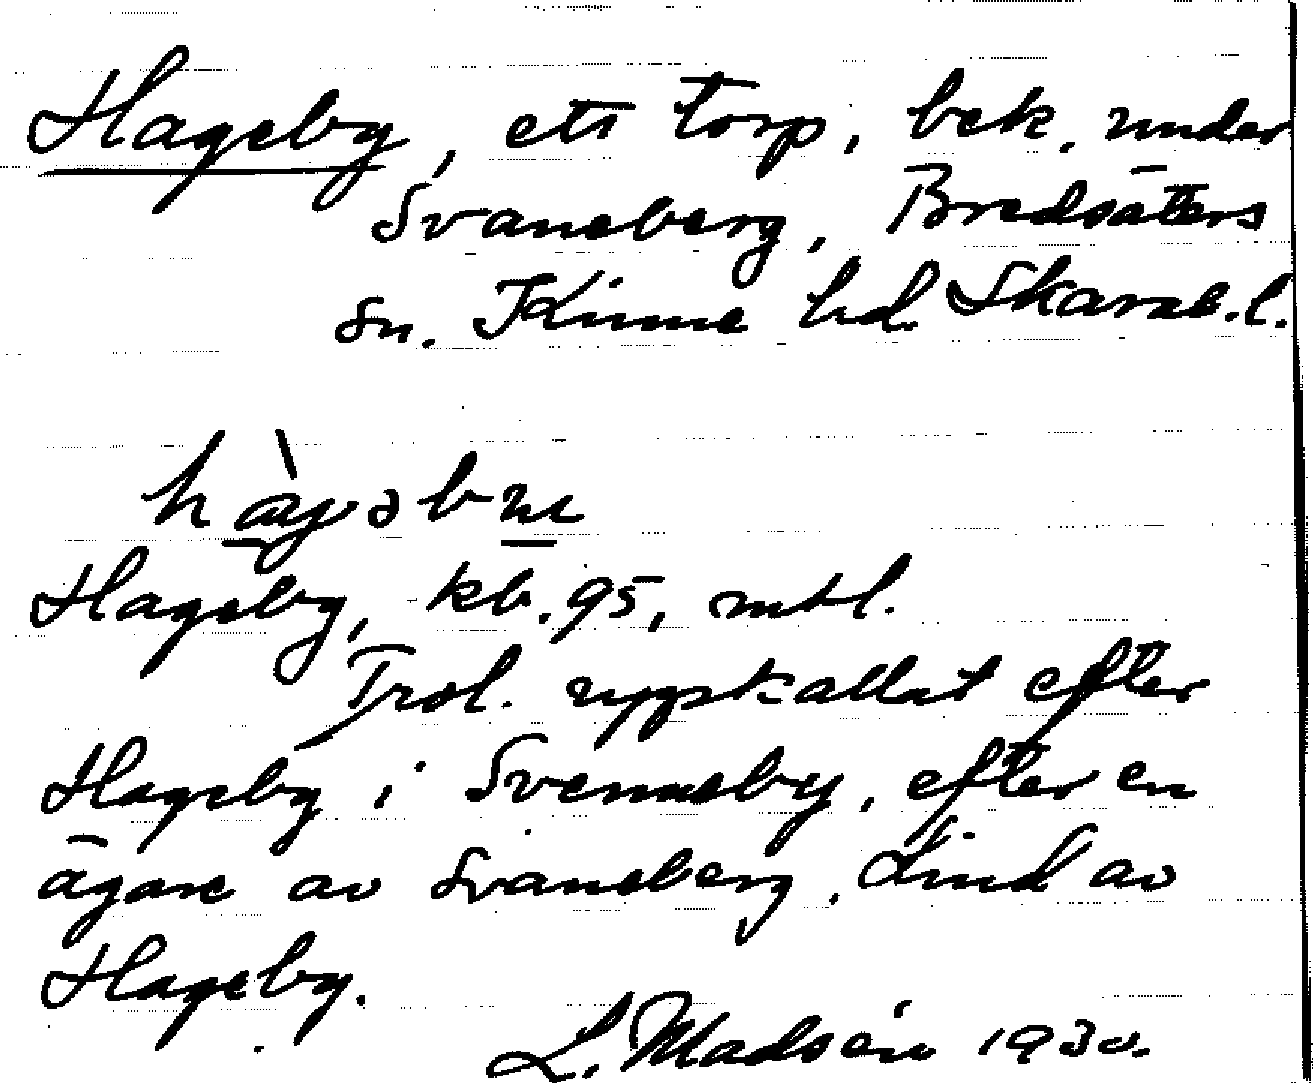 Hageby, ett torp, bek. under
Svaneberg, Bredsäters
sn. Kinne hd. Skarab. l.
hàgəbʏ
Hageby, kb. 95, mtl.
Trol. uppkallat efter
Hageby i Svenneby, efter en
ägare av Svaneberg, Lind av
Hageby.
L. Madsén 1930.